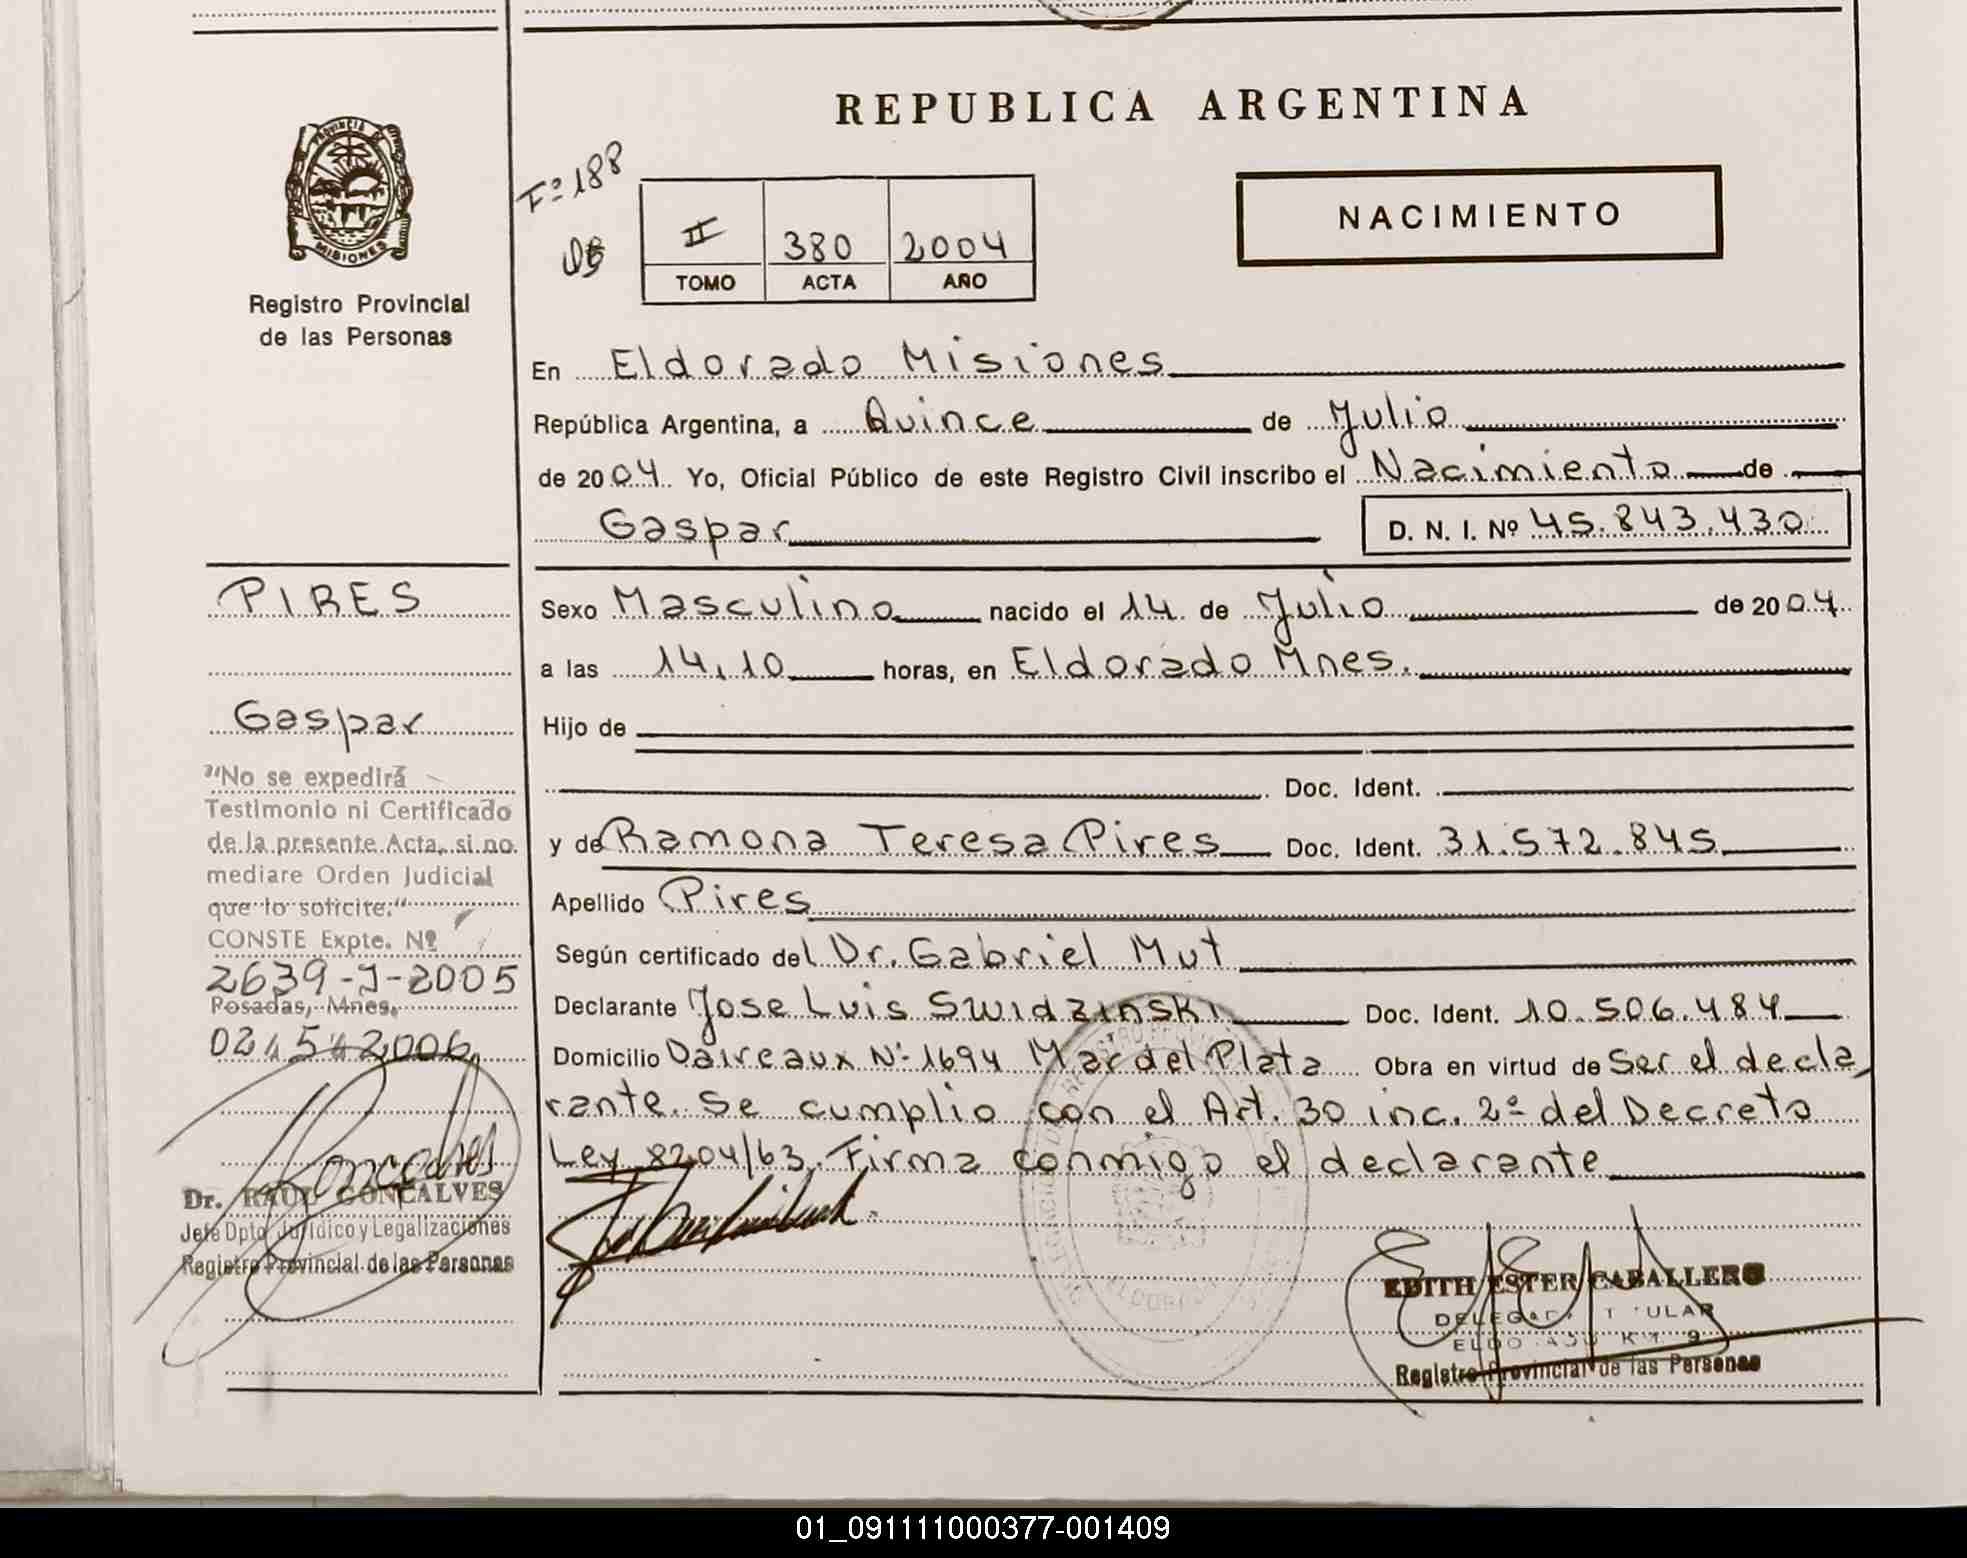 REPUBLICA ARGENTINA
PROVINCIA DE
MISIONES
Registro Provincial
de las Personas
F=188
II 380 2004
TOMO ACTA AÑO
NACIMIENTO
En Eldorado Misiones
República Argentina, a Quince de Julio
de 2004 Yo, Oficial Público de este Registro Civil inscribo el Nacimiento de
Gaspar D. N. I. Nº 45.843.430
Sexo Masculino nacido el 14 de Julio de 2004
a las 14,10 horas, en Eldorado Mnes.
Hijo de
Doc. Ident.
y de Ramona Teresa Pires Doc. Ident. 31.572.845
Apellido Pires
Según certificado del Dr. Gabriel Mut
Declarante Jose Luis Swidzinski Doc. Ident. 10.506.484
Domicilio Daireaux Nº 1694 Mar del Plata Obra en virtud de Ser el decla
rante. Se cumplio con el Art. 30 inc. 2º del Decreto
Ley 8204/63. Firma conmigo el declarante
PIRES
Gaspar
"No se expedirá
Testimonio ni Certificado
de la presente Acta, si no
mediare Orden Judicial
que lo solicite."
CONSTE Expte. Nº
2639-J-2005
Posadas, Mnes.
02,5,2006
Dr. RAUL GONCALVES
Jefe Dpto Jurídico y Legalizaciones
Registro Provincial de las Personas
EDITH ESTER CABALLERO
DELEGADA TITULAR
ELDORADO KM 9
Registro Provincial de las Personas
01_091111000377-001409